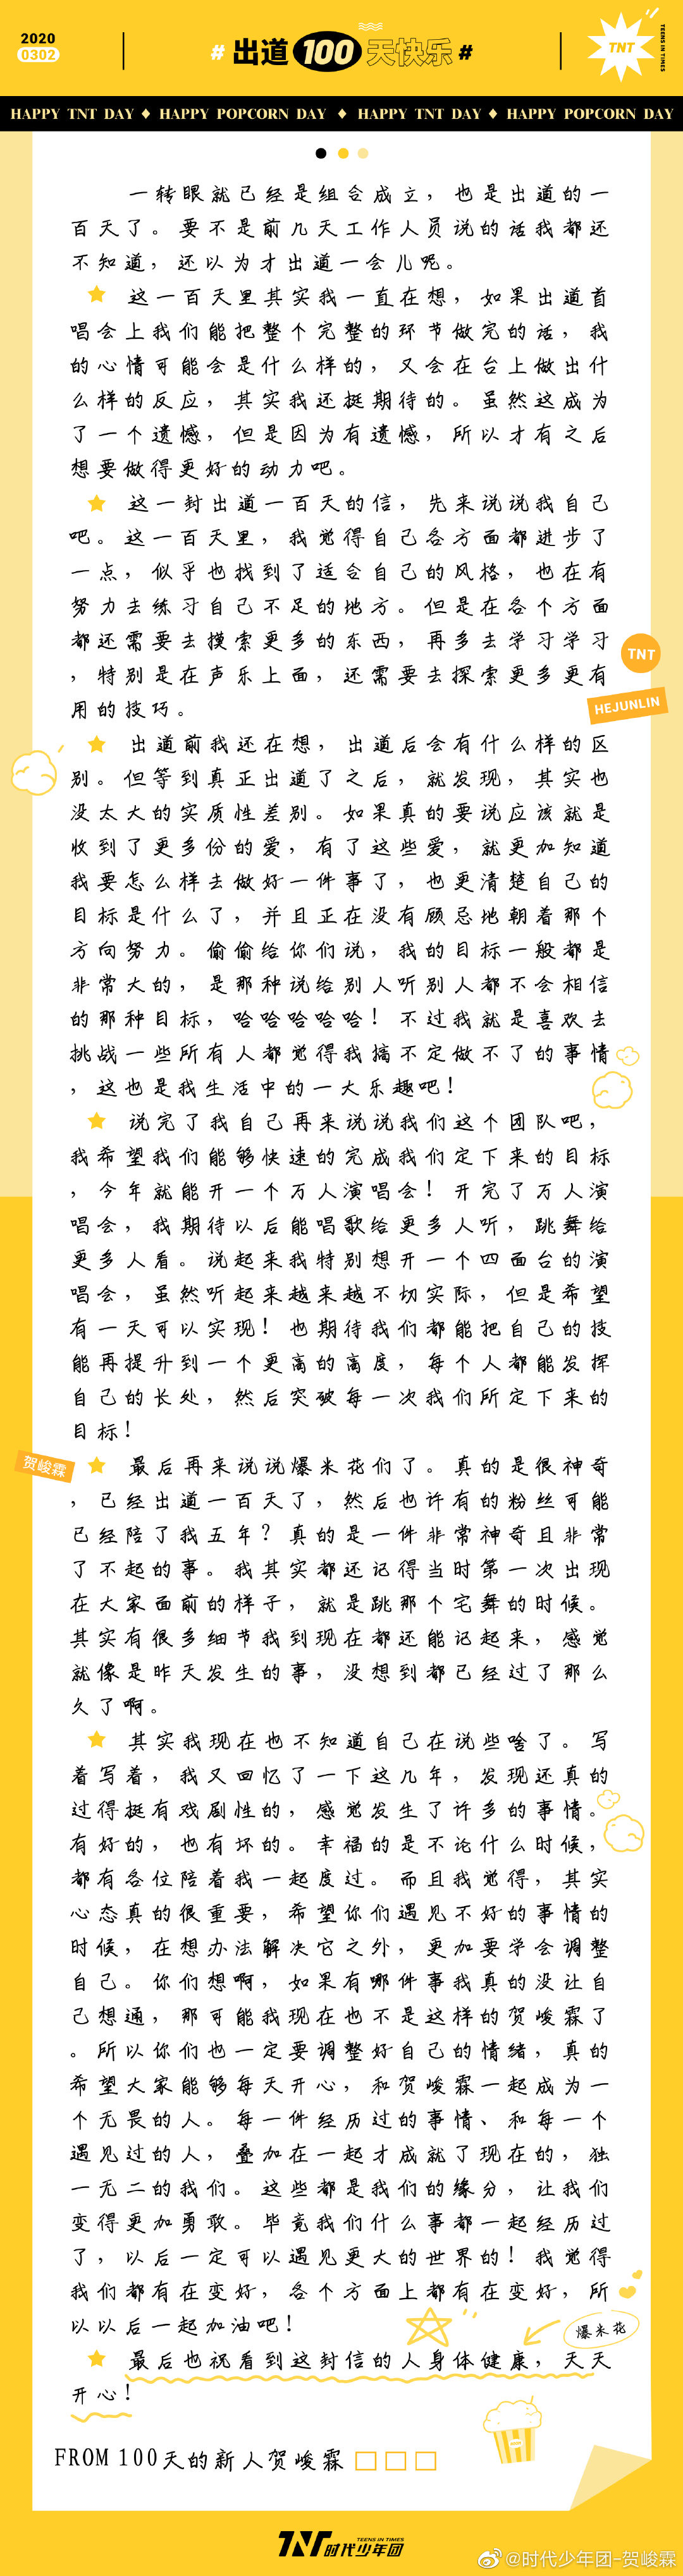 2020
0302
# 出道100天快乐 #
TNT
TEENS IN TIMES
HAPPY TNT DAY ♦ HAPPY POPCORN DAY ♦ HAPPY TNT DAY ♦ HAPPY POPCORN DAY
一转眼就已经是组合成立，也是出道的一
百天了。要不是前几天工作人员说的话我都还
不知道，还以为才出道一会儿呢。
这一百天里其实我一直在想，如果出道首
唱会上我们能把整个完整的环节做完的话，我
的心情可能会是什么样的，又会在台上做出什
么样的反应，其实我还挺期待的。虽然这成为
了一个遗憾，但是因为有遗憾，所以才有之后
想要做得更好的动力吧。
这一封出道一百天的信，先来说说我自己
吧。这一百天里，我觉得自己各方面都进步了
一点，似乎也找到了适合自己的风格，也在有
努力去练习自己不足的地方。但是在各个方面
都还需要去摸索更多的东西，再多去学习学习
，特别是在声乐上面，还需要去探索更多更有
用的技巧。
TNT
HEJUNLIN
出道前我还在想，出道后会有什么样的区
别。但等到真正出道了之后，就发现，其实也
没太大的实质性差别。如果真的要说应该就是
收到了更多份的爱，有了这些爱，就更加知道
我要怎么样去做好一件事了，也更清楚自己的
目标是什么了，并且正在没有顾忌地朝着那个
方向努力。偷偷给你们说，我的目标一般都是
非常大的，是那种说给别人听别人都不会相信
的那种目标，哈哈哈哈哈！不过我就是喜欢去
挑战一些所有人都觉得我搞不定做不了的事情
，这也是我生活中的一大乐趣吧！
说完了我自己再来说说我们这个团队吧，
我希望我们能够快速的完成我们定下来的目标
，今年就能开一个万人演唱会！开完了万人演
唱会，我期待以后能唱歌给更多人听，跳舞给
更多人看。说起来我特别想开一个四面台的演
唱会，虽然听起来越来越不切实际，但是希望
有一天可以实现！也期待我们都能把自己的技
能再提升到一个更高的高度，每个人都能发挥
自己的长处，然后突破每一次我们所定下来的
目标！
贺峻霖
最后再来说说爆米花们了。真的是很神奇
，已经出道一百天了，然后也许有的粉丝可能
已经陪了我五年？真的是一件非常神奇且非常
了不起的事。我其实都还记得当时第一次出现
在大家面前的样子，就是跳那个宅舞的时候。
其实有很多细节我到现在都还能记起来，感觉
就像是昨天发生的事，没想到都已经过了那么
久了啊。
其实我现在也不知道自己在说些啥了。写
着写着，我又回忆了一下这几年，发现还真的
过得挺有戏剧性的，感觉发生了许多的事情。
有好的，也有坏的。幸福的是不论什么时候，
都有各位陪着我一起度过。而且我觉得，其实
心态真的很重要，希望你们遇见不好的事情的
时候，在想办法解决它之外，更加要学会调整
自己。你们想啊，如果有哪件事我真的没让自
己想通，那可能我现在也不是这样的贺峻霖了
。所以你们也一定要调整好自己的情绪，真的
希望大家能够每天开心，和贺峻霖一起成为一
个无畏的人。每一件经历过的事情、和每一个
遇见过的人，叠加在一起才成就了现在的，独
一无二的我们。这些都是我们的缘分，让我们
变得更加勇敢。毕竟我们什么事都一起经历过
了，以后一定可以遇见更大的世界的！我觉得
我们都有在变好，各个方面上都有在变好，所
以以后一起加油吧！
爆米花
最后也祝看到这封信的人身体健康，天天
开心！
FROM 100天的新人贺峻霖 □□□
TNT TEENS IN TIMES 时代少年团
@时代少年团-贺峻霖